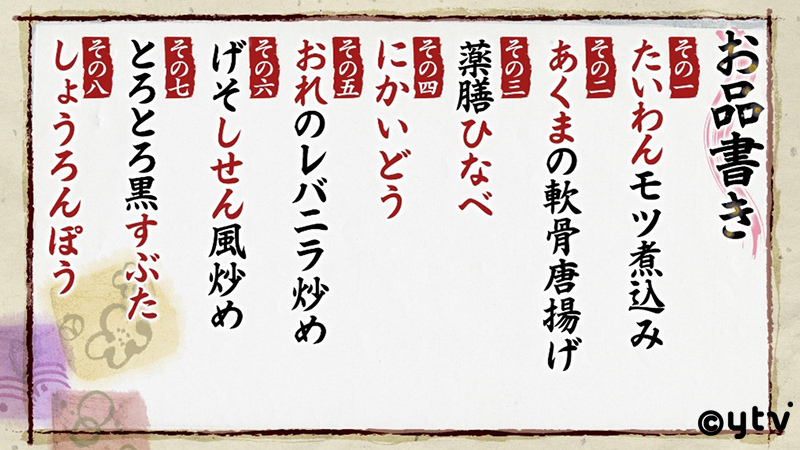 お品書き
その一
たいわんモツ煮込み
その二
あくまの軟骨唐揚げ
その三
薬膳ひなべ
その四
にかいどう
その五
おれのレバニラ炒め
その六
げそしせん風炒め
その七
とろとろ黒すぶた
その八
しょうろんぽう
©ytv